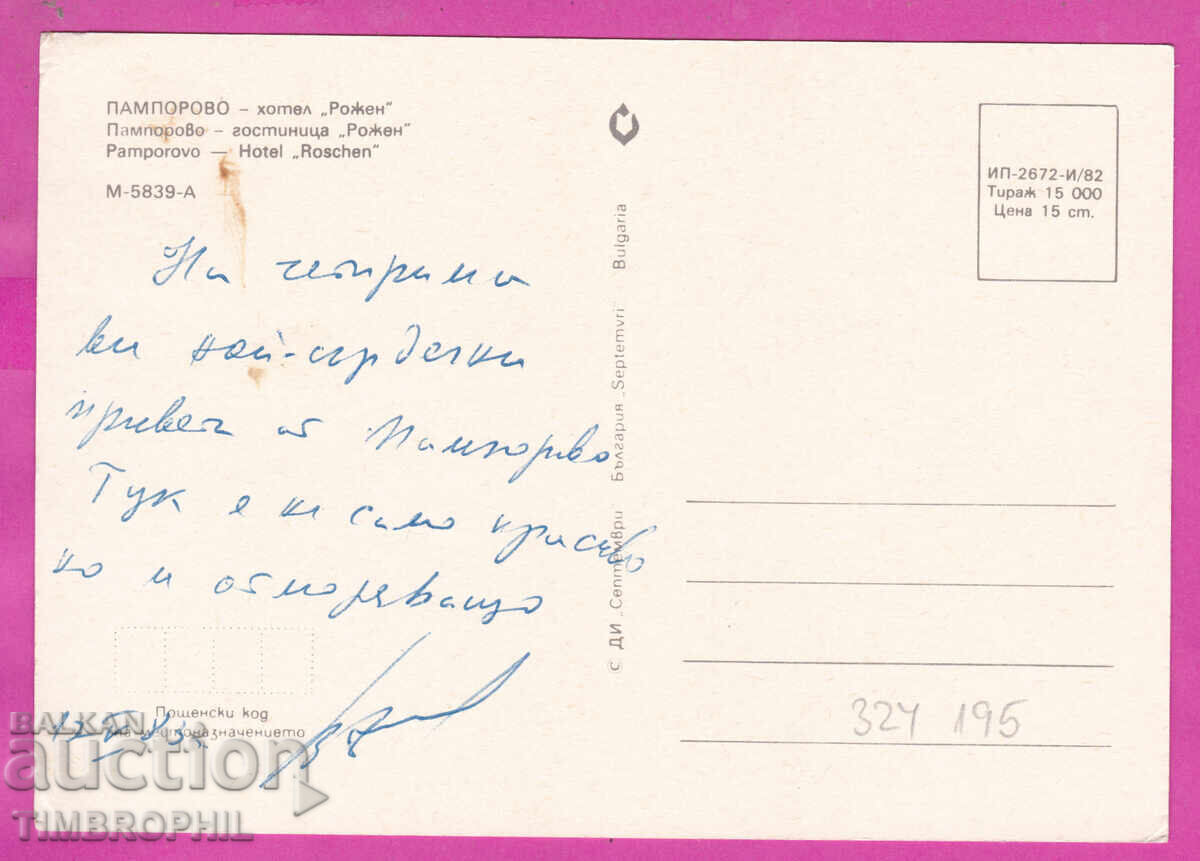 ПАМПОРОВО – хотел „Рожен"
Пампорово – гостиница „Рожен"
Pamporovo — Hotel „Roschen"
М-5839-А
На четирима
ви най-сърдечни
привет от Пампорово
Тук е не само красиво
но и отморяващо
Пощенски код
на местоназначението
С ДИ „Септември България „Septemvri Bulgaria
ИП-2672-И/82
Тираж 15 000
Цена 15 ст.
324 195
BALKAN
auction
TIMBROPHIL